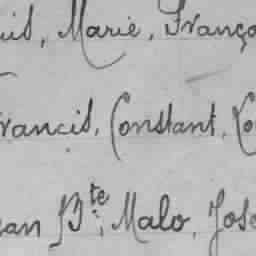 uis, Marie, Franço
rancis, Constant, Co
ean Bte, Malo, Jose